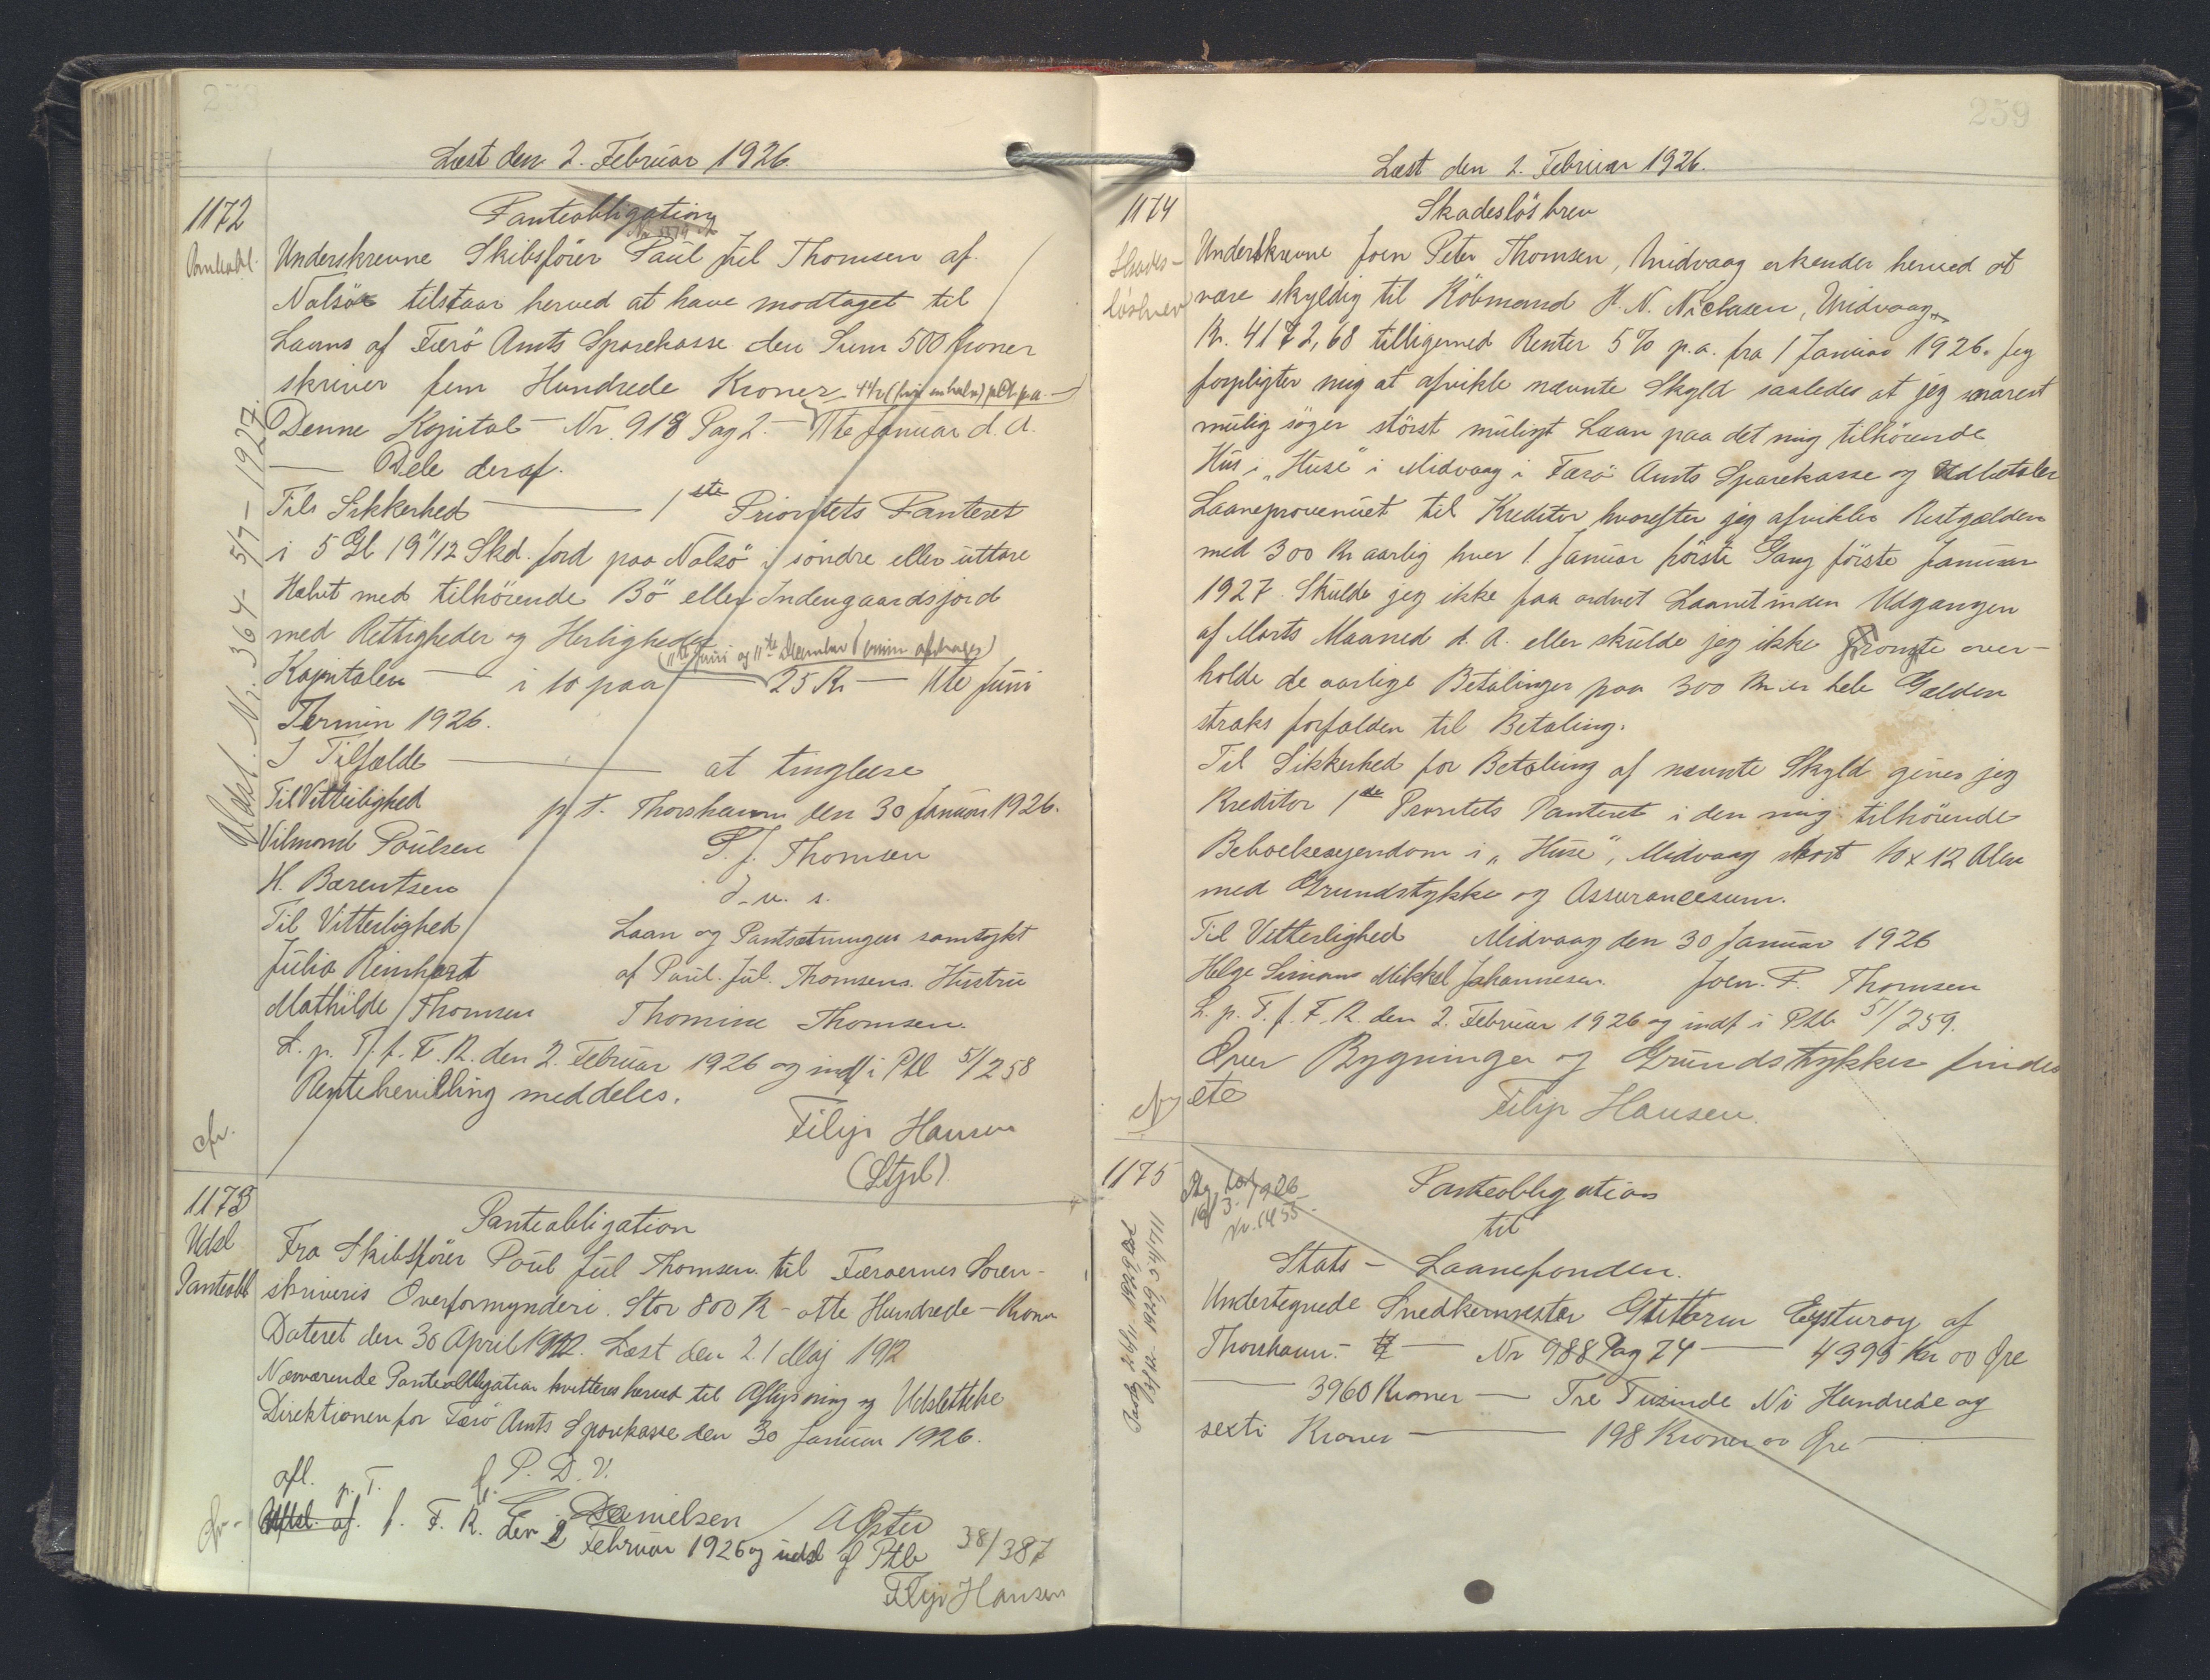 258
Læst den 2. Februar 1926.
1172
Panteobl.
Panteobligation
Underskrevne Skibsförer Paul Jul Thomsen af
Nolsöe tilstaar herved at have modtaget til
Laans af Færö Amts Sparekasse den Sum 500 Kroner
skriver fem Hundrede Kroner 4½ (fire en halv) pCt p.a.
Denne Kapital - Nr. 918 Pag 2. - 11te Januar d. A.
Dele deraf.
Til Sikkerhed 1ste Prioritets Panteret
i 5 Gl 19"/12 Skd. Jord paa Nolsö i söndre eller uttare
Halvt med tilhörende Bö eller Indengaardsjord
med Rettigheder og Herligheder
(11te Juni og 11te December Termin afdrages)
Kapitalen i to paa 25 Kr 11te Juni
Termin 1926.
I Tilfælde at tinglæse
Til Vitterlighed p. t. Thorshavn den 30 Januar 1926.
Vilmond Poulsen P. J. Thomsen
H. Barentsen d. u. s.
Til Vitterlighed Laan og Pantsætningen samtykt
Julia Reinhardt af Paul Jul. Thomsens Hustru
Mathilde Thomsen Thomine Thomsen.
L. p. T. f. F. R. den 2. Februar 1926 og indf i Ptb 51/258
Rentebevilling meddeles.
cfr.
Filip Hansen
(Stpl).
Udsl. Nr. 364 - 5/7 - 1927.
1173
Udsl
Panteobl
Panteobligation
Fra Skibsförer Poul Jul Thomsen til Færøernes Soren-
skriveris Overformynderi. Stor 800 K - otte Hundrede - Kroner
Dateret den 30 April 1912. Læst den 21 Maj 1912
Nærværende Panteobligation kvitteres herved til Aflysning og Udslettelse
Direktionen for Færö Amts Sparekasse den 30 Januar 1926.
P. D. V.
C. Danielsen / A Øster
afl. p. T. f. F. R. den 2 Februar 1926 og udsl af Ptb 38/387
cfr.
Filip Hansen
259
Læst den 2. Februar 1926.
1174
Skades-
lösbrev
Skadeslösbrev
Underskrevne Joen Peter Thomsen, Midvaag erkender herved at
være skyldig til Köbmand H. N. Niclasen, Midvaag,
Kr. 4172,68 tilligemed Renter 5% p.a. fra 1 Januar 1926. Jeg
forpligter mig at afvikle nævnte Skyld saaledes at jeg snarest
mulig söger störst muligt Laan paa det mig tilhörende
Hus i "Huse" i Midvaag i Færö Amts Sparekasse og Udbetaler
Laaneprovenuet til Kreditor hvorefter jeg afvikler Restgælden
med 300 Kr aarlig hver 1. Januar förste Gang förste Januar
1927. Skulde jeg ikke faa ordnet Laanet inden Udgangen
af Marts Maaned d. A. eller skulde jeg ikke promte over-
holde de aarlige Betalinger paa 300 Kr er hele Gælden
straks forfalden til Betaling.
Til Sikkerhed for Betaling af nævnte Skyld giver jeg
Kreditor 1ste Prioritets Panteret i den mig tilhörende
Beboelsesejendom i "Huse", Midvaag stort 10 x 12 Alen
med Grundstykke og Assurancesum.
Til Vitterlighed Midvaag den 30 Januar 1926
Helge Simons Mikkel Johannesen. Joen. P. Thomsen
L. p. T. f. F. R. den 2. Februar 1926 og indf i Ptb 51/259.
Over Bygninger og Grundstykker findes
ete
cfr
Filip Hansen.
1175
1926
Nr. 1455
Panteobligation
til
Stats - Laanefonden.
Undertegnede Snedkermester Guttorm Eysturoy af
Thorshavn - Nr 988 Pag 74 4395 Kr 00 Øre
3960 Kroner - Tre Tusinde Ni Hundrede og
sexti Kroner 198 Kroner 00 Øre